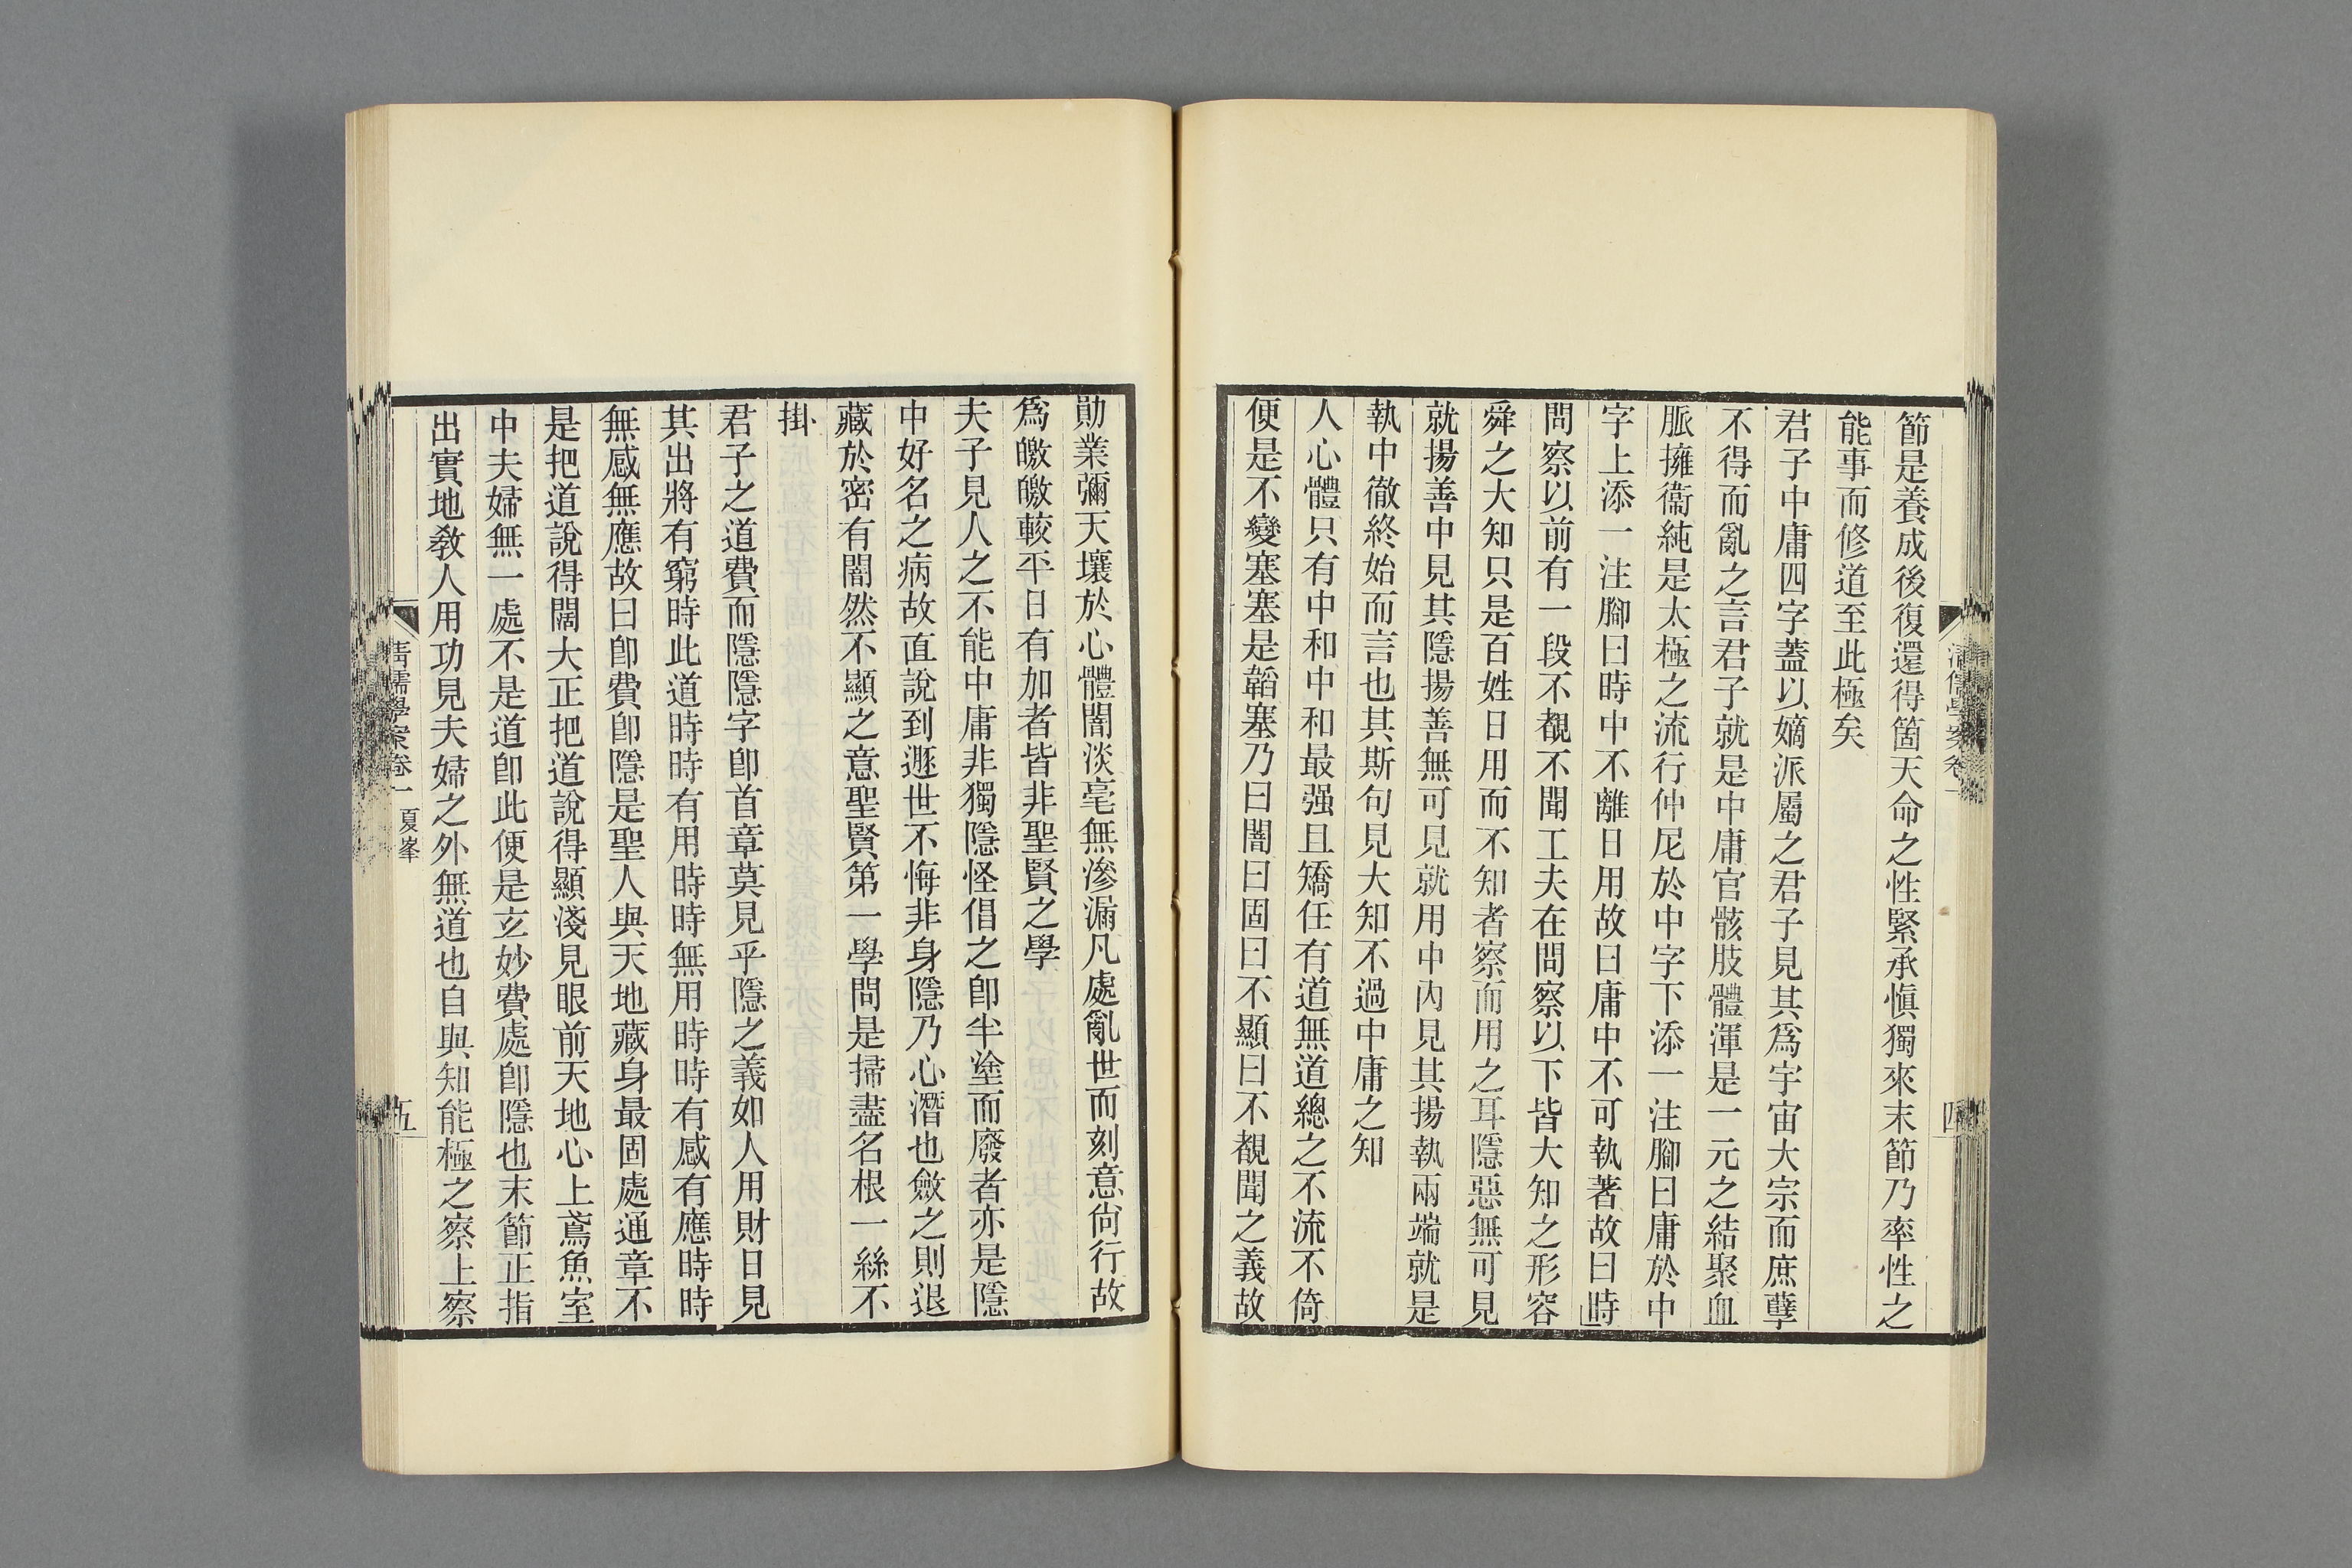 節是養成後復還得箇天命之性緊承愼獨來末節乃率性之
能事而修道至此極矣
君子中庸四字蓋以嫡派屬之君子見其爲宇宙大宗而庶孽
不得而亂之言君子就是中庸官骸肢體渾是一元之結聚血
脈擁衞純是太極之流行仲尼於中字下添一注腳曰庸於中
字上添一注腳曰時中不離日用故曰庸中不可執著故曰時
問察以前有一段不覩不聞工夫在問察以下皆大知之形容
舜之大知只是百姓日用而不知者察而用之耳隱惡無可見
就揚善中見其隱揚善無可見就用中內見其揚執兩端就是
執中徹終始而言也其斯句見大知不過中庸之知
人心體只有中和中和最强且矯任有道無道總之不流不倚
便是不變塞塞是韜塞乃曰闇曰固曰不顯曰不覩聞之義故
勛業彌天壤於心體闇淡毫無滲漏凡處亂世而刻意尙行故
爲皦皦較平日有加者皆非聖賢之學
夫子見人之不能中庸非獨隱怪倡之卽半塗而廢者亦是隱
中好名之病故直說到遯世不悔非身隱乃心潛也斂之則退
藏於密有闇然不顯之意聖賢第一學問是掃盡名根一絲不
掛
君子之道費而隱隱字卽首章莫見乎隱之義如人用財日見
其出將有窮時此道時時有用時時無用時時有感有應時時
無感無應故曰卽費卽隱是聖人與天地藏身最固處通章不
是把道說得闊大正把道說得顯淺見眼前天地心上鳶魚室
中夫婦無一處不是道卽此便是玄妙費處卽隱也末節正指
出實地敎人用功見夫婦之外無道也自與知能極之察上察
淸儒學案卷一 夏峯
五
淸儒學案卷一
四